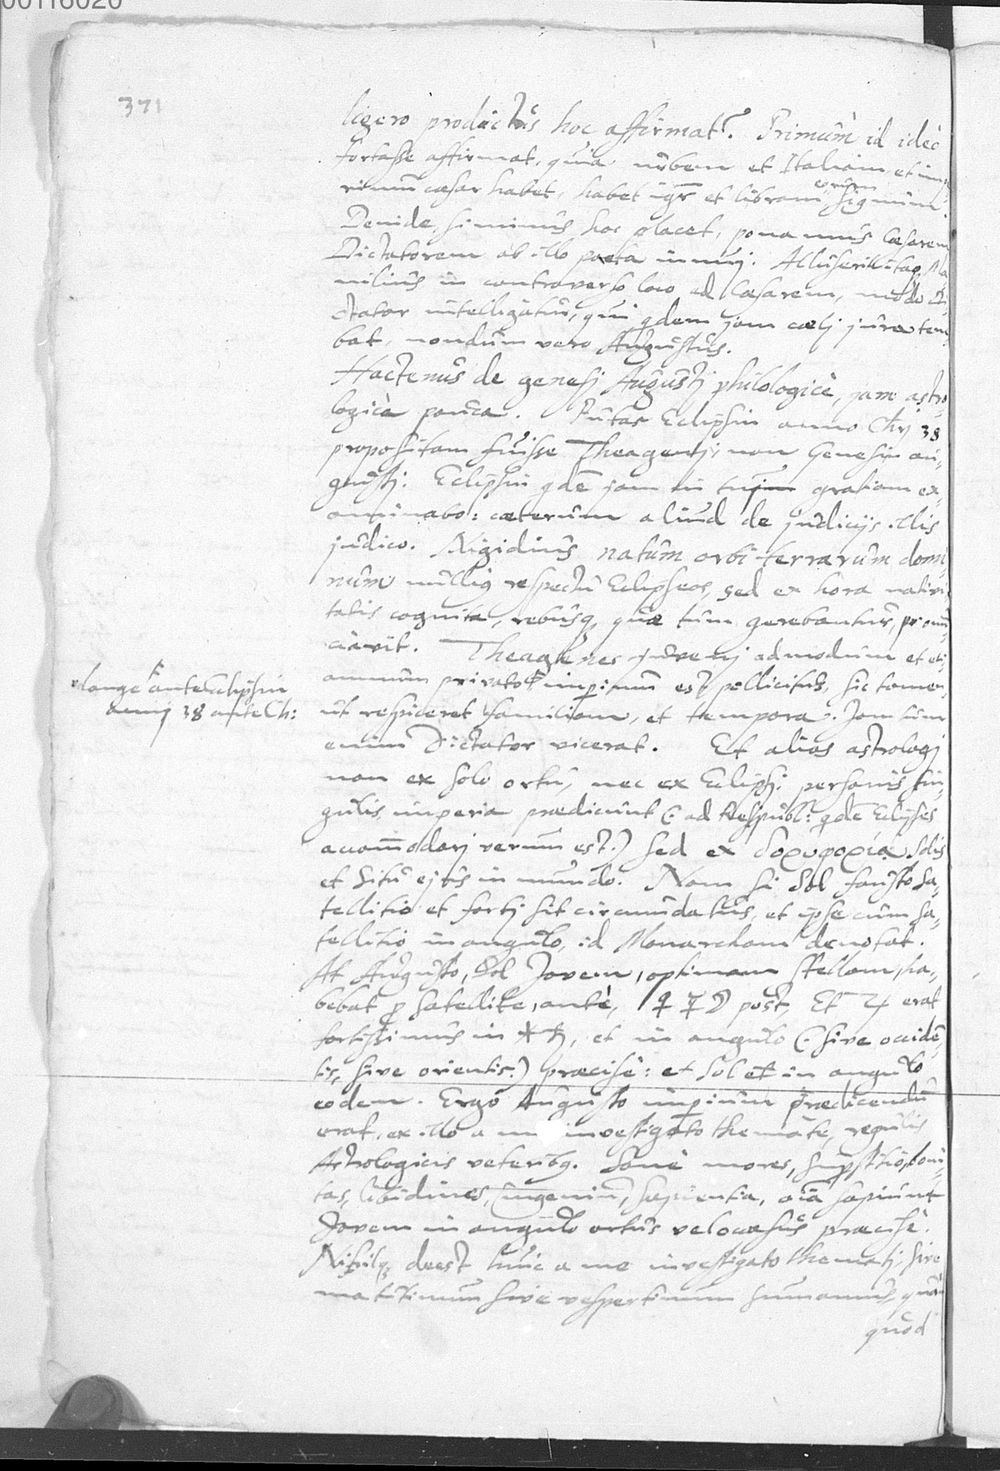 00116020
371
ligero productus hoc affirmat. Primum id ideo
fortasse affirmat, quia urbem et Italiam, et im-
perium caesar habet, habet igr et libram eorum signum.
Deinde, si minus hoc placet, ponamus Caesarem
Dictatorem ab illo poeta innuj. Alluserit itaq, Ma
nilius in controverso loco ad Caesarem, modo Di-
ctator intelligatur, qui qdem jam caelj jura tene
bat, nondum vero Augustus.
Hactenus de genesj Augustj philologicè, jam astro-
logicè pauca. Putas Eclipsin anno Chrj 38
propositam fuisse Theagenj, non Genesin au-
gustj. Eclipsin qdem jam in tuam gratiam ex-
aminabo: caeterum aliud de judicijs illis
judico. Nigidius natum orbi terrarum domi-
num nullig respectu Eclipseos, sed ex hora nativi
tatis cognita, rebusq, quae tum gerebantur, pronun
ciavit. Theagenes juvenj admodum et etj
longè ante Eclipsin
annj 38 ante Ch:
amnum privato imperium est pollicitus, sic tamen
ut respiceret familiam, et tempora. Jam tum
enim Dictator vicerat. Et alias astrologj
non ex solo ortu, nec ex Eclipsj personis sin-
gulis imperia praedicunt (ad Respubl: qdem Eclipses
accommodarj verum est.) sed ex δορυφορία Solis
et situ ejus in mundo. Nam si Sol fausto sa-
tellitio et fortj sit circumdatus, et ipse cum sa-
tellitio in angulo, id Monarcham denotat.
At Augusto, Sol Jovem, optimam stellam, ha-
bebat p satellite, antè, ♀ ☿ ☽ post, Et ♃ erat
fortissimus in ⚹ ♄, et in angulo (sive occiden-
tis, sive orientis.) praecisè: et Sol et in angulo
eodem. Ergò Augusto imperium praedicendum
erat, ex illo a me investigato themate, regulis
Astrologicis veteribq. Sanè mores, superstitio, boni-
tas, libidines, ingenium, sapientia, oia sapiunt
Jovem in angulo ortus vel occasus praecisè.
Nihilq, deest huic a me investigato thematj, sive
matutinum sive vespertinum sumamus, quam
quod